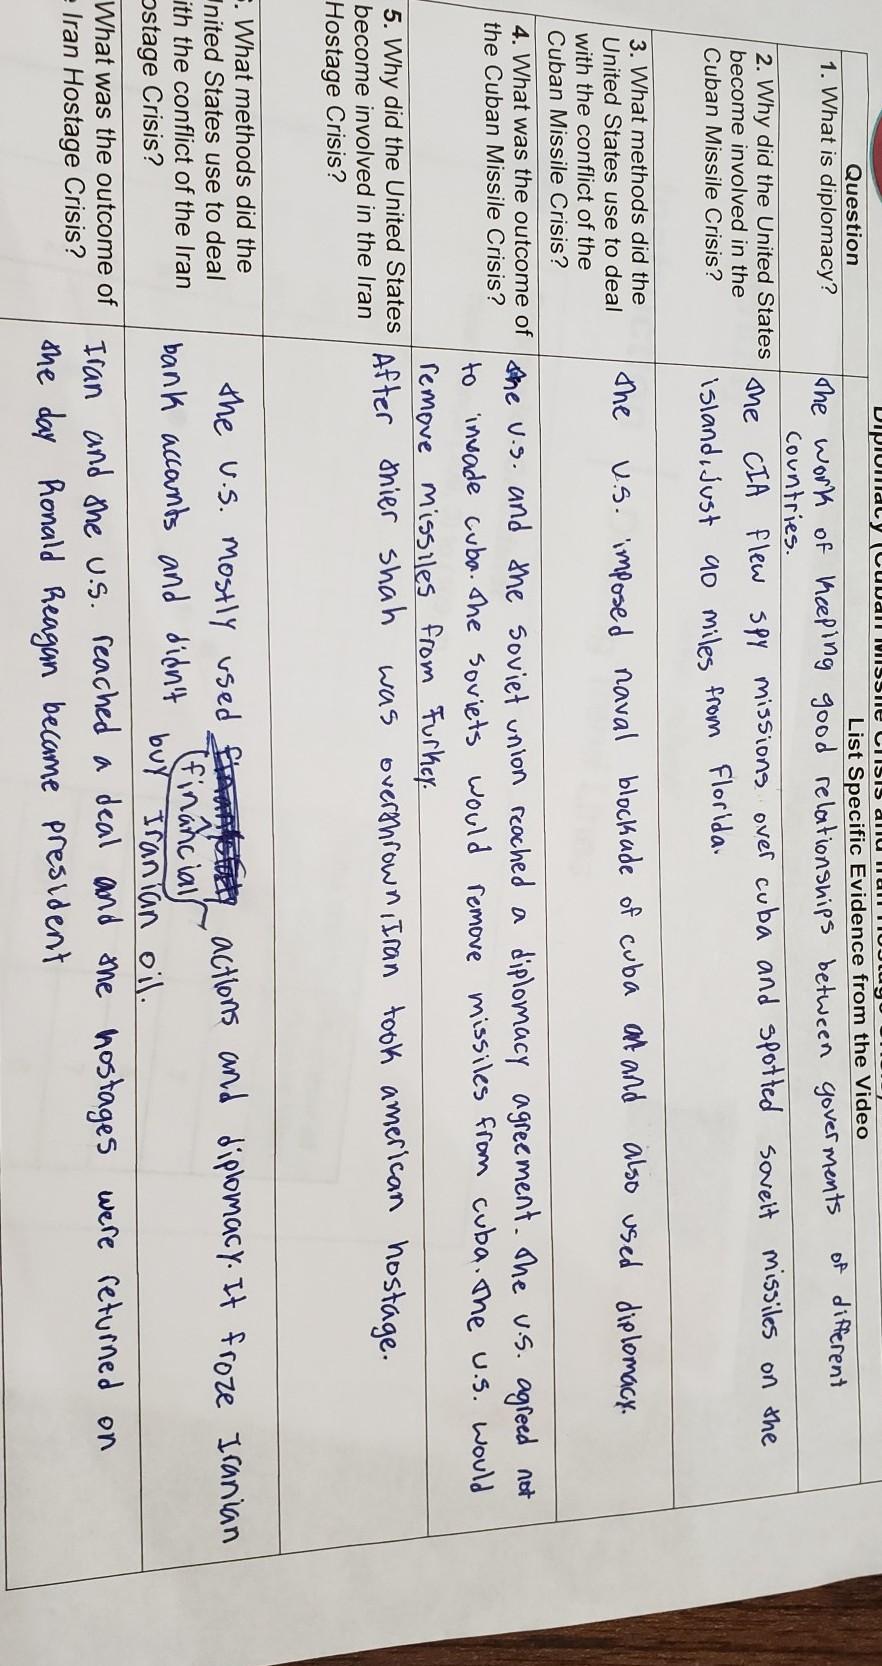 Question
List Specific Evidence from the Video
1. What is diplomacy?
the work of keeping good relationships between goverments of different
countries.
2. Why did the United States
become involved in the
Cuban Missile Crisis?
the CIA flew spy missions over cuba and spotted soveit missiles on the
island, Just 90 miles from Florida.
3. What methods did the
United States use to deal
with the conflict of the
Cuban Missile Crisis?
the U.S. imposed naval blockade of cuba and also used diplomacy.
4. What was the outcome of
the Cuban Missile Crisis?
the U.S. and the soviet union reached a diplomacy agreement. the U.S. agreed not
to invade cuba. the soviets would remove missiles from cuba. the U.S. would
remove missiles from Turkey.
5. Why did the United States
become involved in the Iran
Hostage Crisis?
After thier shah was overthrown, Iran took american hostage.
. What methods did the
United States use to deal
ith the conflict of the Iran
ostage Crisis?
the U.S. mostly used financial actions and diplomacy. It froze Iranian
bank accounts and didn't buy Iranian oil.
What was the outcome of
Iran Hostage Crisis?
Iran and the U.S. reached a deal and the hostages were returned on
the day Ronald Reagan became president